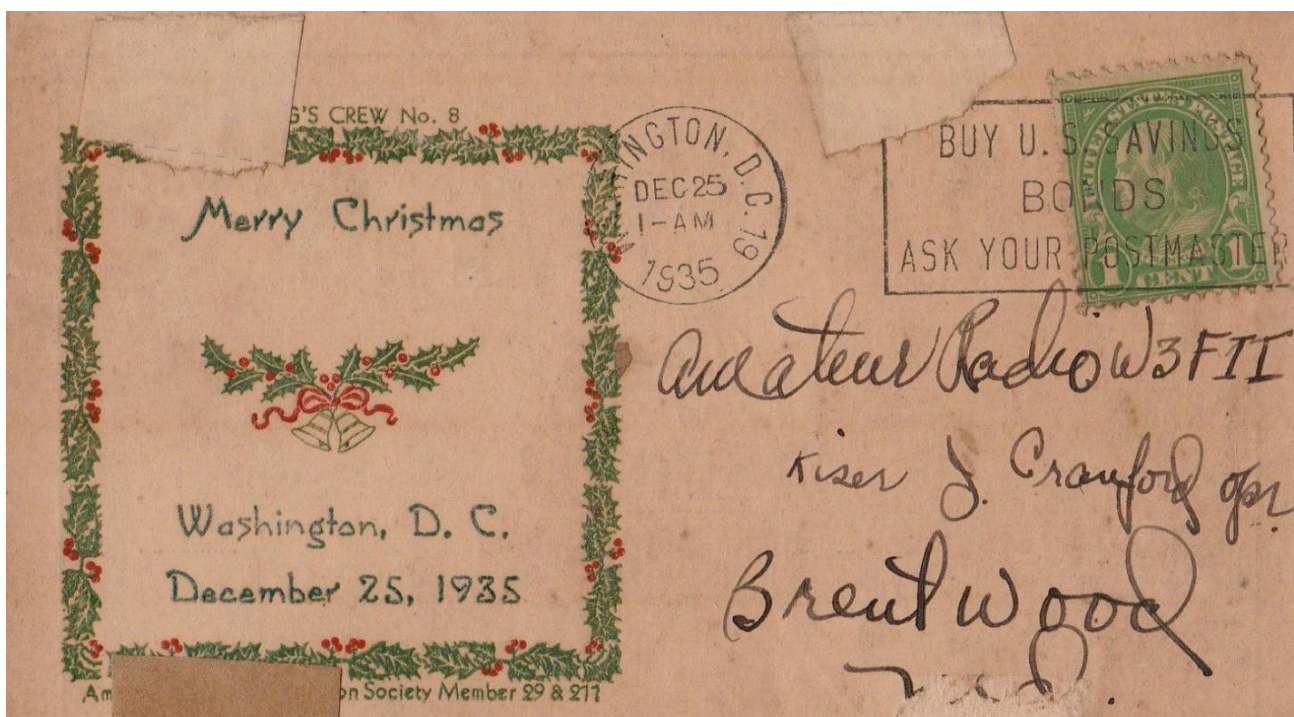 G'S CREW No. 8
Merry Christmas
Washington, D. C.
December 25, 1935
Am on Society Member 29 & 211
INGTON, D.C. 19
DEC 25
1-AM
1935
BUY U. S. SAVINGS
BONDS
ASK YOUR POSTMASTER
UNITED STATES POSTAGE
1 CENT 1
Amateur Radio W3FII
Kiser J. Cranford opr.
Brentwood